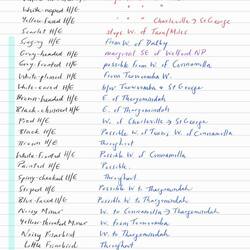 White-naped H/E " " "
Yellow- H/E " Charleville → St George
Scarlet H/E stops W. of Tara/Miles
Singing H/E From W. of Dalby
Grey-headed H/E marginal SE of Welford NP
Grey-fronted H/E possible from W. of Cunnamulla
White-plumed H/E From Toowoomba W.
White-eared H/E b/w Toowoomba & St George
Brown-headed H/E E. of Thargomindah
Black-chinned H/E E. of Thargomindah
Pied H/E W. of Charleville → St George
Black H/E Possible W. of Towns, W. of Cunnamulla
Brown H/E Throughout
White-fronted H/E Possible W. of Cunnamulla
Painted H/E Possible.
Spiny-cheeked H/E Throughout
Striped H/E Possible W. to Thargomindah
Blue-faced H/E Possible W. to Thargomindah
Noisy Miner W. to Cunnamulla → Thargomindah
Yellow-throated Miner W. from Toowoomba
Noisy Friarbird W. to Thargomindah
Little Friarbird Throughout